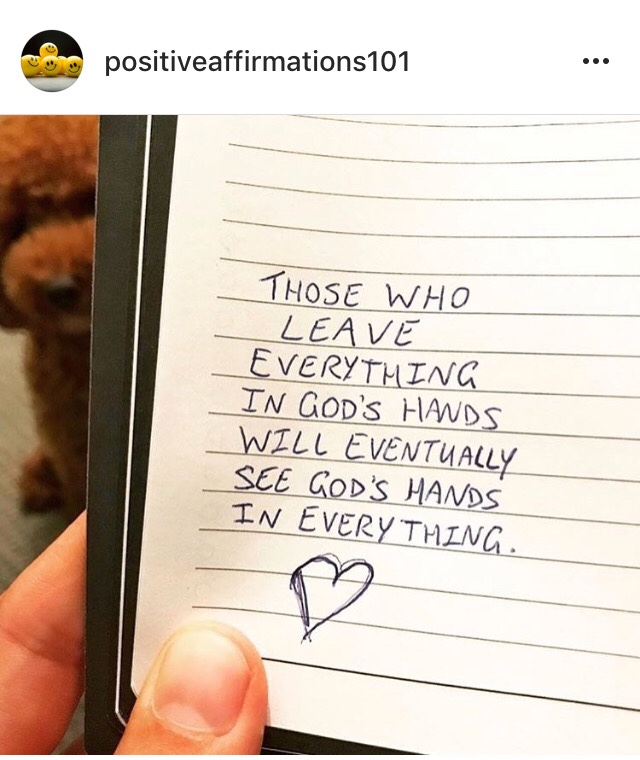 positiveaffirmations101
THOSE WHO
LEAVE
EVERYTHING
IN GOD'S HANDS
WILL EVENTUALLY
SEE GOD'S HANDS
IN EVERYTHING.